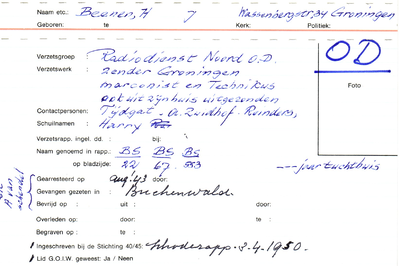 Naam etc.: Beener, H 7 Wassenbergstr, 34 Groningen
Geboren: te Kerk: Politiek:
Verzetsgroep : Radiodienst Noord O.D. OD
Verzetswerk : zender Groningen
marconist en Technikus Foto
ook uit zijn huis uitgezonden
Contactpersonen: Tijdgat - Zuidhof - Reinders,
Schuilnaam : Harry
Verzetsrapp. ingel. dd. : bij:
Naam genoemd in rapp.: BS BS BS
op bladzijde: 22 67 353 ---jaar tuchthuis
Gearresteerd op : aug '43 door:
Gevangen gezeten in : Buchenwald.
Bevrijd op : uit : door:
Overleden op: : door: te :
Begraven op : te :
Ingeschreven bij de Stichting 40/45: 3.4.1950.
Lid G.O.I.W. geweest: Ja / Neen